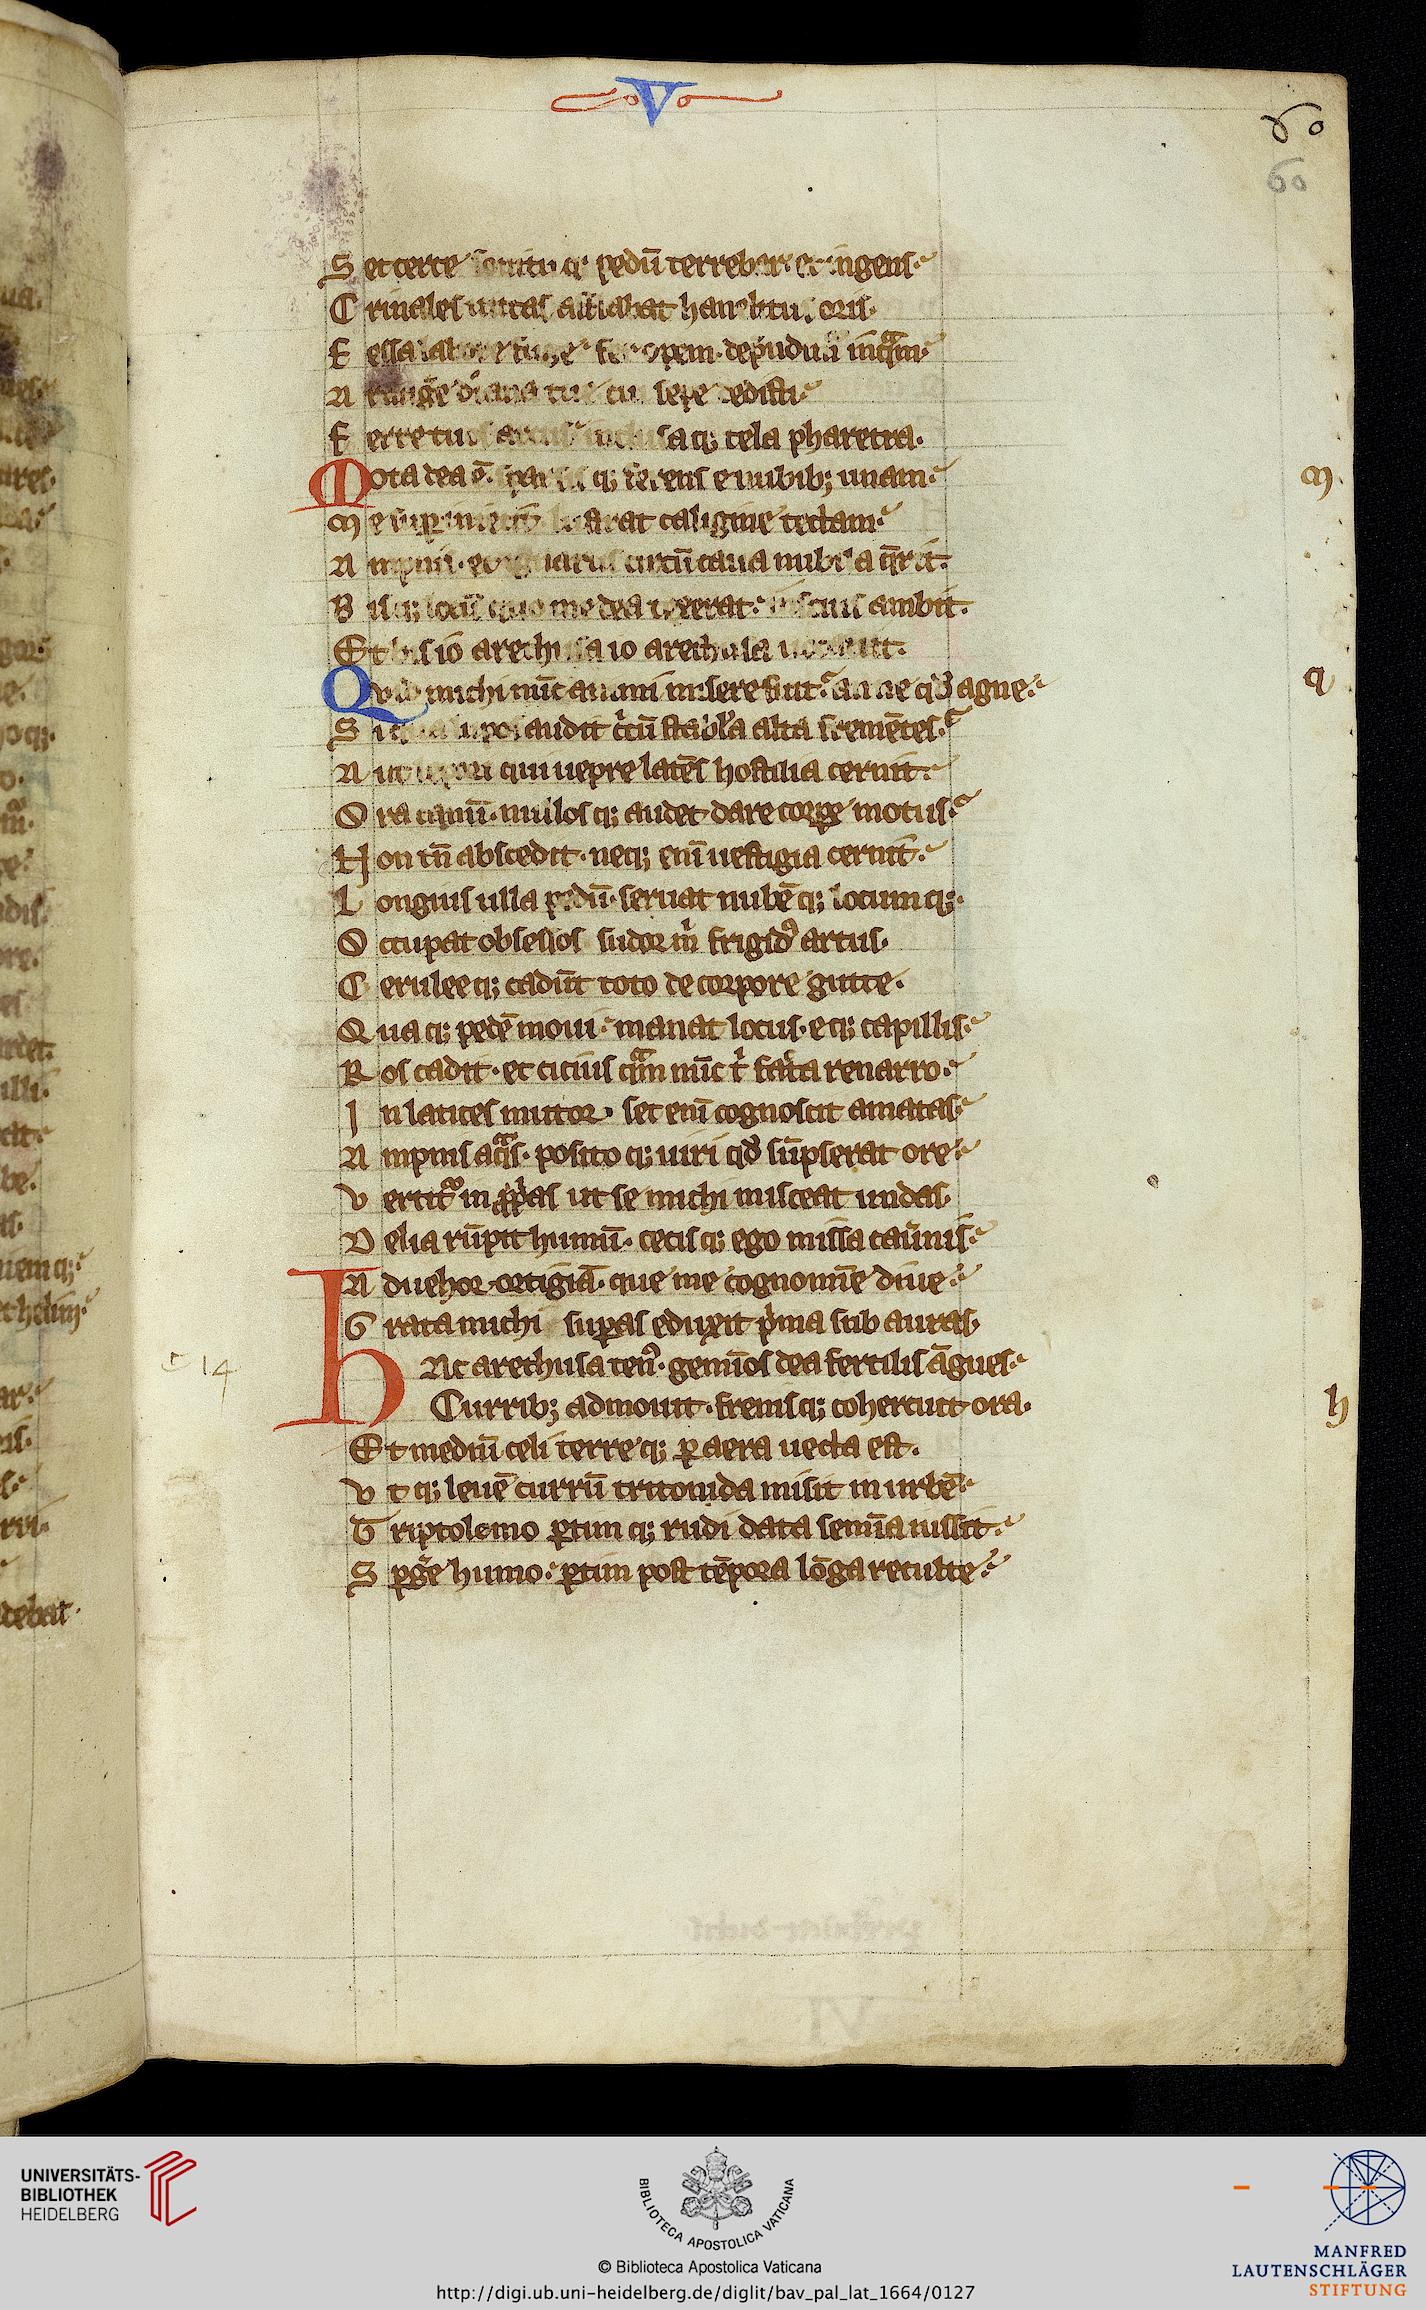 V
60
60
S et certe sonitu q; pedū terrebar et ingens
C rinales uittas afflabat hanelitus oris
F essa labore fuge fer opem dependim̄ inquam
A rmige diana tue cui sepe dedisti
F erre tuos arcus inclusa q; tela pharetra.
Mota dea ē. spissis q; ferens e nubib; unam
m
M e super iniecit lustrat caligine tectam
A mpnis et ignarus circū caua nubila q̄rit.
B is q; locū quo me dea texerat inscius ambit.
Et bis io arethusa io arethusa uocauit.
Quid michi nūc animi misere fuit an ne qd̄ agne
q
S i qua lupos audit circū stabula alta fremētes
A ut lepori qui uepre latēs hostilia cernit
O ra canū. nullos q; audet dare corpore motus
N on tn̄ abscedit. neq; enī uestigia cernit
L ongius ulla pedū. seruat nubē q; locum q;.
O ccupat obsessos sudor m̄ frigid9 artus.
C erulee q; cadūt toto de corpore gutte.
Q ua q; pedē moui manat locus. e q; capillis
R os cadit. et cicius quam nūc t̄ facta renarro
I n latices mittor. set enī cognoscit amatas
A mpnis aquas. posito q; uiri qd̄ sūpserat ore
V ertitur in propias ut se michi misceat undas.
D elia rūpit humū. cecis q; ego missa cauernis
A duehor ortigiā. que me cognomīe diue
G rata michi superas eduxit prima sub auras.
c 14
HAc arethusa ten9. geminos dea fertilis āgues
Currib; admouit. frenis q; cohercuit ora.
h
Et mediū celi terre q; per aera uecta est.
V t q; leuē currū tritonida misit in urbē
T riptolemo partim q; rudi data semīa iussit
S pargere humo. partim post tēpora lōga reculte
UNIVERSITÄTS-
BIBLIOTHEK
HEIDELBERG
BIBLIOTECA APOSTOLICA VATICANA
© Biblioteca Apostolica Vaticana
http://digi.ub.uni-heidelberg.de/diglit/bav_pal_lat_1664/0127
MANFRED
LAUTENSCHLÄGER
STIFTUNG